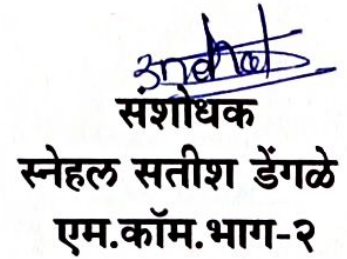 संशोधक
स्नेहल सतीश डेंगळे
एम.कॉम.भाग-२